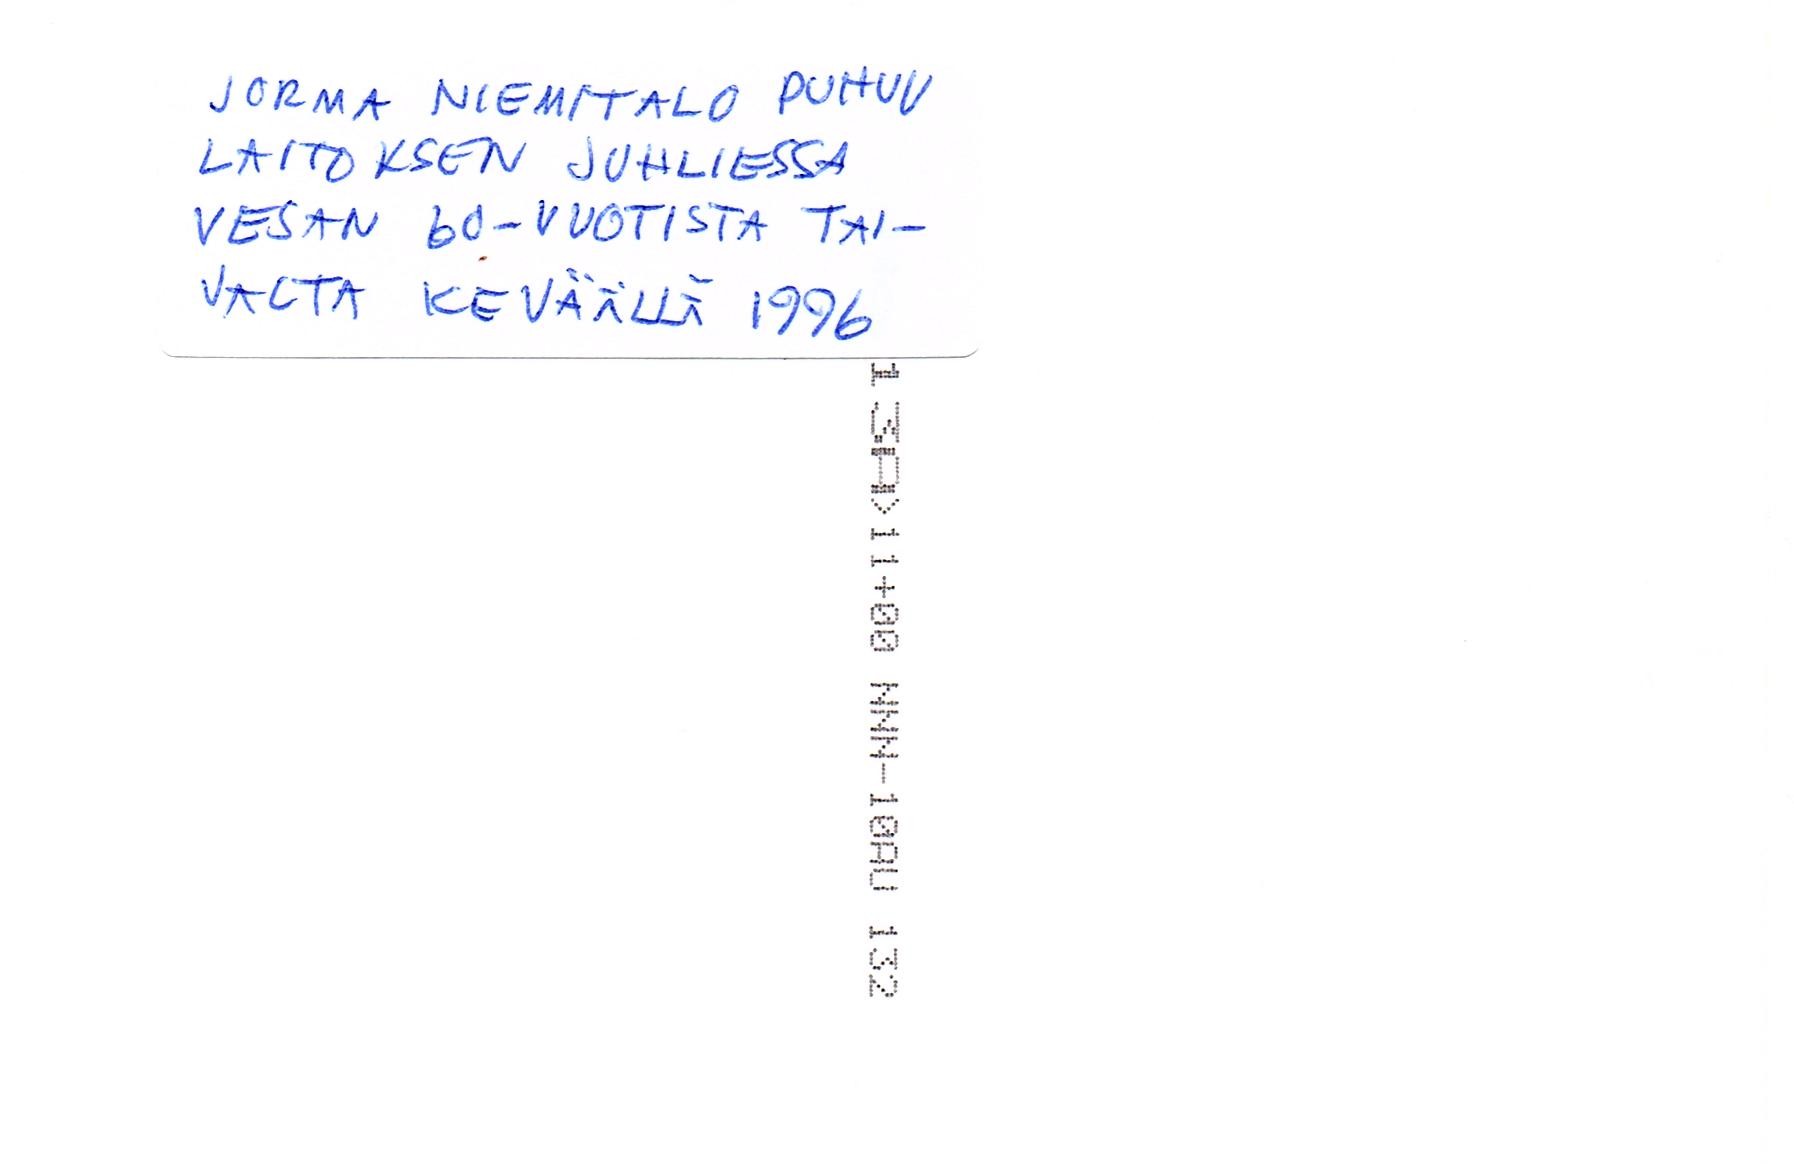 JORMA NIEMITALO PUHUU
LAITOKSEN JUHLIESSA
VESAN 60-VUOTISTA TAI-
VALTA KEVÄÄLLÄ 1996
1 3A>11+00 NNN-10AU 132